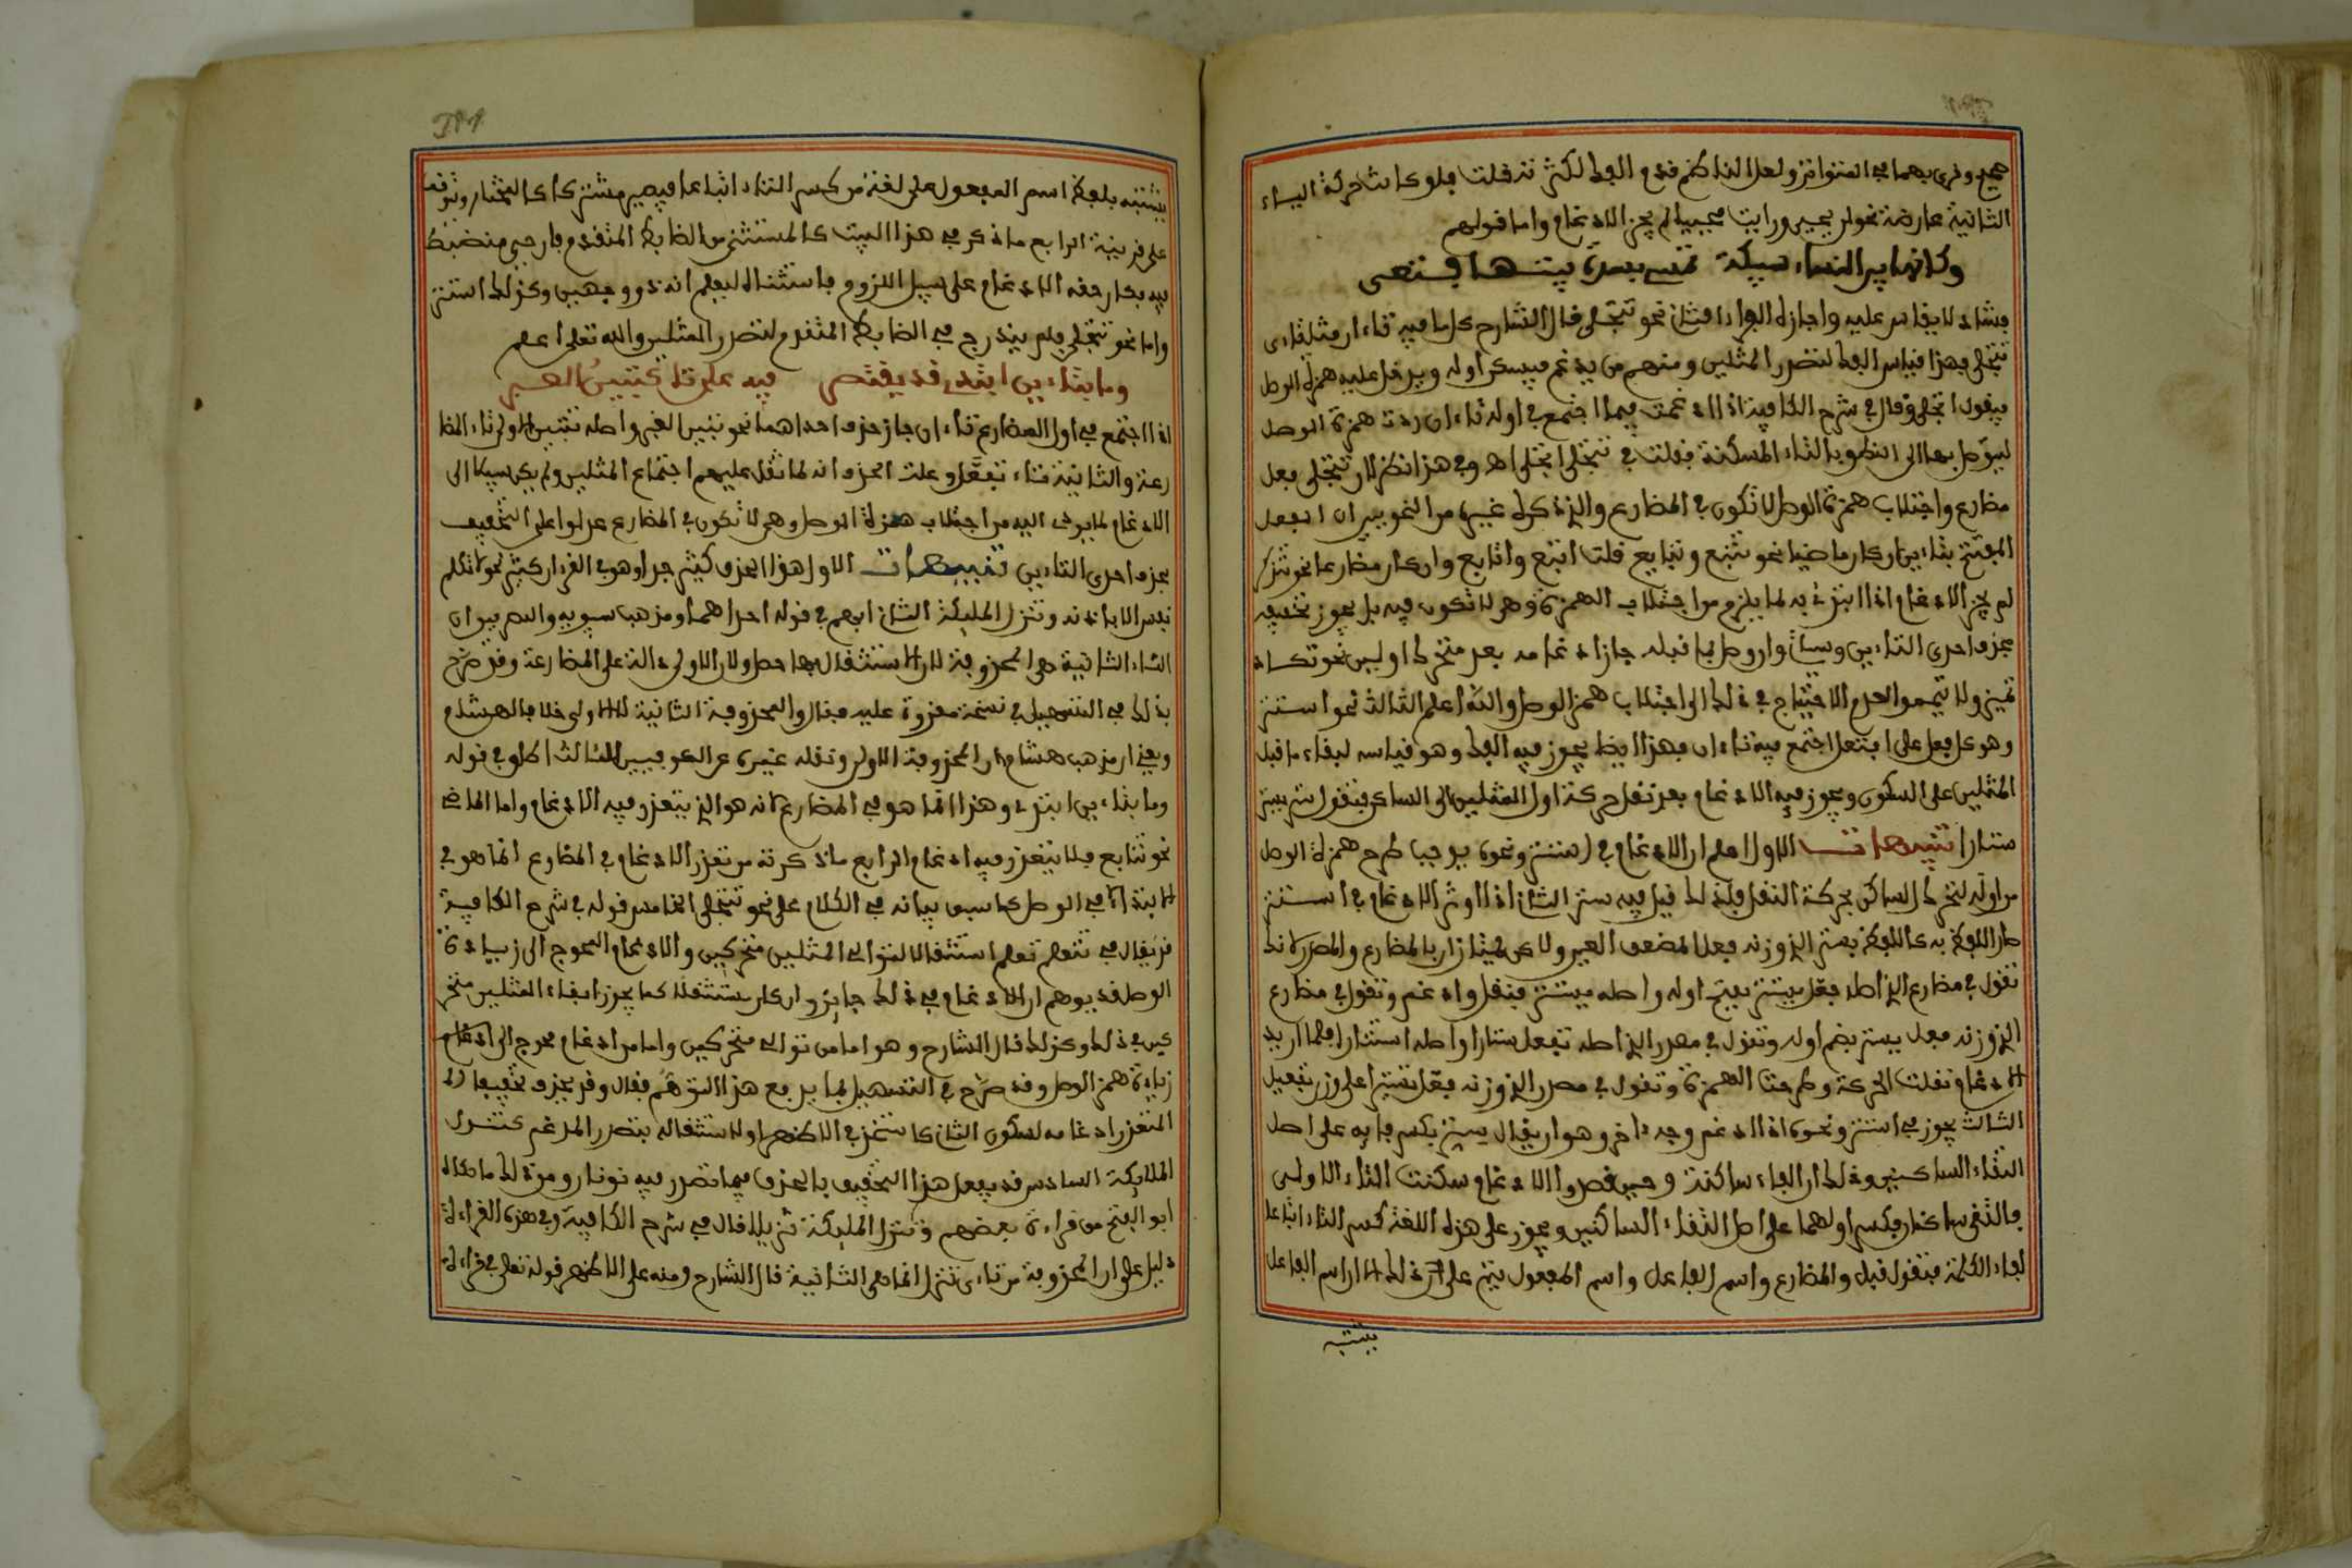 صحيح وقرئ بهما في المتواتر ولعل الناظم قدم الفك لكثرته قلت فلو كانت حركة الياء
الثانية عارضة نحو لن يحيى ورأيت محييا لم يجز الادغام واما قولهم
وكانها بين النساء سبيكة تمشي بسدة بيتها فتعى
فشاذ لا يقاس عليه واجازه الفراء الثاني نحو تتجلى قال الشارح كل ما فيه تاءان مثل تاءي
تتجلى فهذا قياسه الفك لتصدر المثلين ومنهم من يدغم فيسكن اوله ويدخل عليه همزة الوصل
فيقول اتجلى وقال في شرح الكافية اذا ادغمت فيما اجتمع في اوله تاءان زدت همزة الوصل
ليتوصل بها الى النطق بالتاء المسكنة فقلت في تتجلى اتجلى اهـ وفي هذا نظر لان تتجلى فعل
مضارع واجتلاب همزة الوصل لا تكون في المضارع والذي ذكره غيره من النحويين ان الفعل
المفتتح بتاءين ان كان ماضيا نحو تتبع وتتابع قلت اتبع واتابع وان كان مضارعا نحو تتذكر
لم يجز الادغام اذا ابتدئ به لما يلزم من اجتلاب الهمزة وهي لا تكون فيه بل يجوز تخفيفه
بحذف احدى التاءين وسيأتي وان وصل بما قبله جاز ادغامه بعد متحرك او لين نحو تكاد
تميز ولا تيمموا لعدم الاحتياج في ذلك الى اجتلاب همزة الوصل والله اعلم الثالث نحو استتر
وهو كل فعل على افتعل اجتمع فيه تاءان فهذا ايضا يجوز فيه الفك وهو قياسه لبقاء ما قبل
المثلين على السكون ويجوز فيه الادغام بعد نقل حركة اول المثلين الى الساكن فتقول ستر يستر
ستارا تنبيهات الاول اعلم ان الادغام في استتر ونحوه يوجب طرح همزة الوصل
من اوله لتحرك الساكن بحركة النقل فلذلك قيل فيه ستر الثاني اذا اوثر الادغام في استتر
صار اللفظ به كاللفظ بستر الذي وزنه فعل المضعف العين ولكن يمتازان بالمضارع والمصدر لانك
تقول في مضارع الذي اصله افتعل يستر بفتح اوله واصله يستتر فنقل وادغم وتقول في مضارع
الذي وزنه فعل يستر بضم اوله وتقول في مصدر الذي اصله افتعل ستارا واصله استتارا فلما اريد
الادغام نقلت الحركة وطرحت الهمزة وتقول في مصدر الذي وزنه فعل تستيرا على وزن تفعيل
الثالث يجوز في استتر ونحوه اذا ادغم وجه اخر وهو ان يقال ستر بكسر فائه على اصل
التقاء الساكنين وذلك ان الفاء ساكنة وحين قصدوا الادغام سكنت التاء الاولى
فالتقى ساكنان فكسر اولهما على اصل التقاء الساكنين ويجوز على هذه اللغة كسر التاء اتباعا
لفاء الكلمة فتقول فتل والمضارع واسم الفاعل واسم المفعول مبنى على ذلك الا ان اسم الفاعل
يشتبه
يشتبه بلفظ اسم المفعول على لغة من كسر التاء اتباعا فيصير مشتركا كالمختار ونحوه
على قرينة الرابع ما ذكر في هذا البيت كالمستثنى من الضابط المتقدم فان حيي منضبط
فيه فكان حقه الادغام على سبيل اللزوم فاستثناه ليعلم انه ذو وجهين وكذلك استتر
واما نحو تتجلى فلم يندرج في الضابط المتقدم لتصدر المثلين والله تعالى اعلم
وما بتاءين ابتدي قد يقتصر فيه على تا كتبين العبر
اذا اجتمع في اول المضارع تاءان جاز حذف احداهما نحو تبين العبر واصله تتبين الاولى تاء المضا
رعة والثانية تاء تفعل وعلة الحذف انه لما ثقل عليهم اجتماع المثلين ولم يكن سبيل الى
الادغام لما يودي اليه من اجتلاب همزة الوصل وهي لا تكون في المضارع عدلوا على التخفيف
بحذف احدى التاءين تنبيهات الاول هذا الحذف كثير جدا وهو في القرءان كثير نحو لا تكلم
نفس الا باذنه وتنزل الملئكة الثاني ابهم في قوله احداهما ومذهب سيبويه والبصريين ان
التاء الثانية هي المحذوفة لان الاستثقال بها حصل ولان الاولى دالة على المضارعة وقد صرح
بذلك في التسهيل في نسخة مقروة عليه فقال والمحذوفة الثانية لا الاولى خلافا لهشام
ويعني ان مذهب هشام ان المحذوفة الاولى ونقله غيره عن الكوفيين الثالث اطلق في قوله
وما بتاءين ابتدي وهذا انما هو في المضارع لانه هو الذي يتعذر فيه الادغام واما الماضي
نحو تتابع فلا يتعذر فيه ادغام الرابع ما ذكرته من تعذر الادغام في المضارع انما هو في
الابتدا لا في الوصل كما سبق بيانه في الكلام على نحو تتجلى الخامس قوله في شرح الكافية
قد يقال في تتعلم تعلم استثقالا لتوالي المثلين متحركين والادغام المحوج الى زيادة
الوصل قد يوهم ان الادغام في ذلك جايز وان كان مستثقلا كما يجوز ابقاء المثلين متحر
كين في ذلك وكذلك قال الشارح وهو اما من توالي متحركين واما من ادغام محوج الى ادغام
زيادة همزة الوصل وقد صرح في التسهيل بما يرفع هذا التوهم فقال وقد يحذف تخفيفا
المتعذر ادغامه لسكون الثاني كاستخذ في الاظهر او لاستثقاله بتصدر المدغم كتنزل
الملايكة السادس قد يفعل هذا التخفيف بالحذف فيما تصدر فيه نونان ومن ذلك ما حكاه
ابو الفتح من قراءة بعضهم وننزل المليكة تنزيلا قال في شرح الكافية وفي هذه القراءة
دليل على ان المحذوفة من تاءى تتنزل انما هي الثانية قال الشارح ومنه على الاظهر قوله تعلى في قراءة